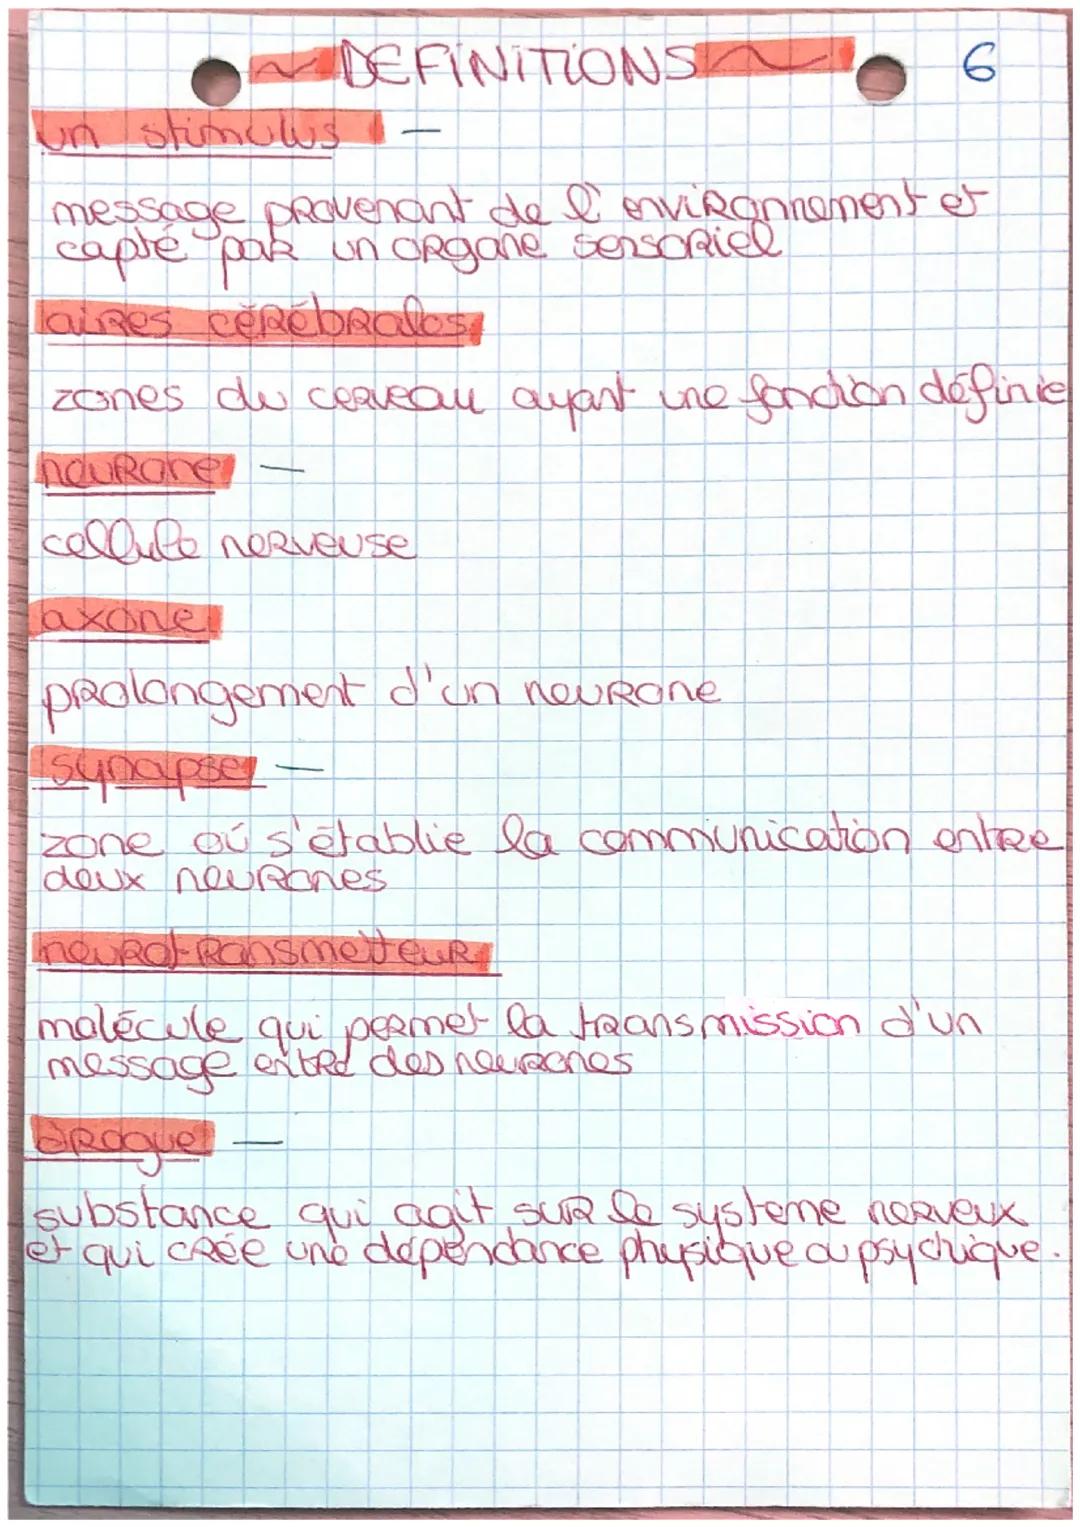 ~ DEFINITIONS ~ 6
un stimulus —
message provenant de l'environnement et
capté par un organe sensoriel
aires cérébrales
zones du cerveau ayant une fonction définie
neurone —
cellule nerveuse
axone
prolongement d'un neurone
synapse —
zone où s'établie la communication entre
deux neurones
neurotransmetteur
molécule qui permet la transmission d'un
message entre des neurones
drogue —
substance qui agit sur le systeme nerveux
et qui crée une dépendance physique ou psychique.